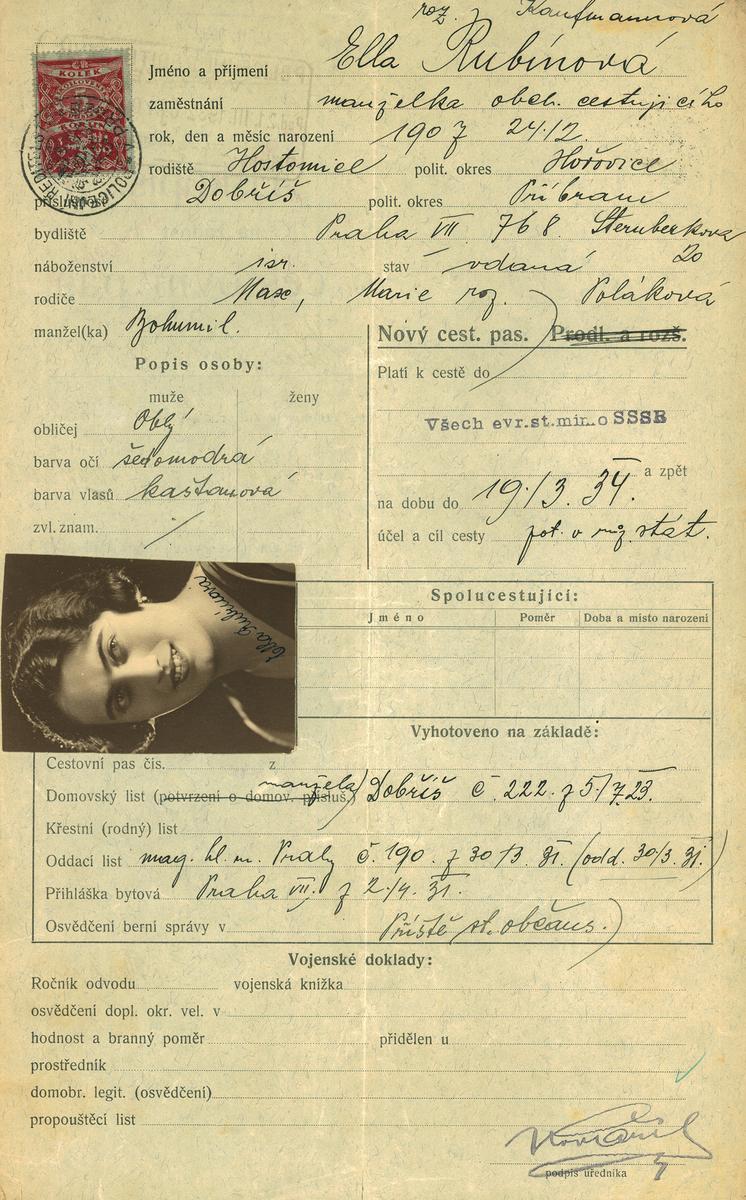 roz. Kaufmannová
Jméno a příjmení Ella Rubínová
zaměstnání manželka obch. cestujícího
rok, den a měsíc narození 1907 24./2.
rodiště Hostomice polit. okres Hořovice
Dobříš polit. okres Příbram
bydliště Praha VII. 768. Sternberkova
20
náboženství isr. stav vdaná
rodiče Max, Marie roz. Poláková
manžel(ka) Bohumil.
Nový cest. pas. Prodl. a rozš.
Popis osoby:
Platí k cestě do
muže ženy
obličej Oblý
Všech evr.st.mim.o SSSR
barva očí šedomodrá
a zpět
barva vlasů kaštanová
na dobu do 19./3. 34.
zvl. znam. /
účel a cíl cesty pot. v růz. stát.
Ella Rubínová
Spolucestující:
Jméno Poměr Doba a místo narození
Vyhotoveno na základě:
Cestovní pas čís. z
manžela)
Domovský list (potvrzení o domov. přísluš.) Dobříš č. 222. z 5./7.23.
Křestní (rodný) list
Oddací list mag. hl. m. Prahy č. 190. z 30/3. 31. (odd. 30/3. 31.)
Přihláška bytová Praha VII. z 2./4. 31.
Osvědčení berní správy v Příště st. občans.)
Vojenské doklady:
Ročník odvodu vojenská knížka
osvědčení dopl. okr. vel. v
hodnost a branný poměr přidělen u
prostředník
domobr. legit. (osvědčení)
propouštěcí list
podpis úředníka